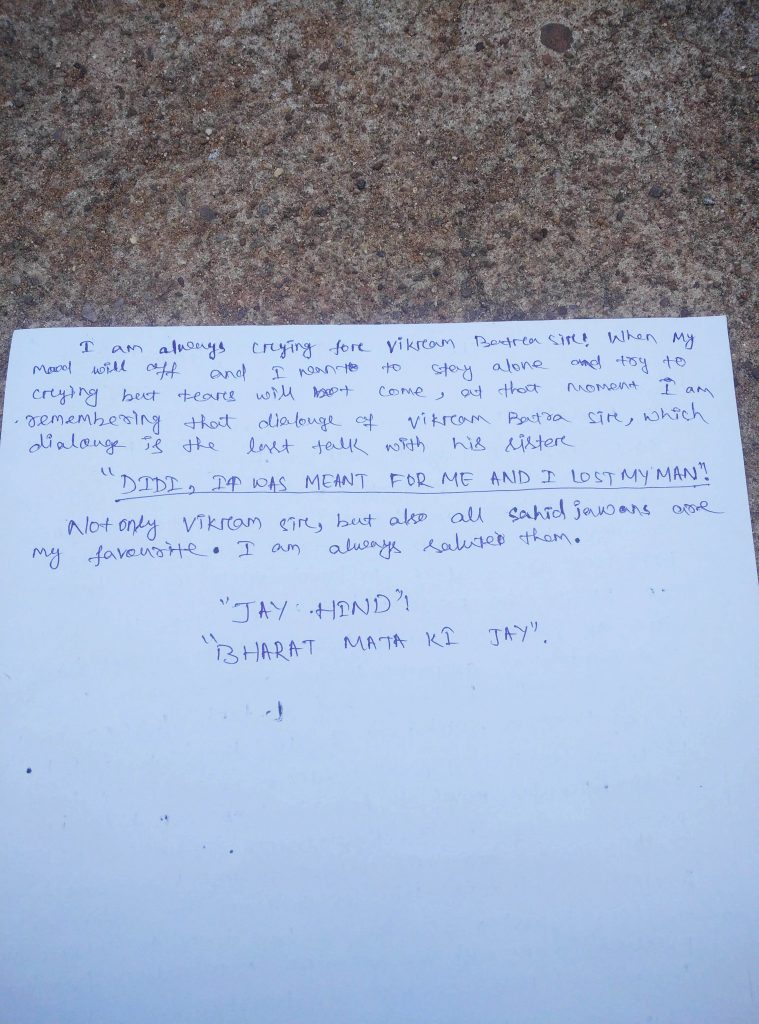 I am always crying fore Vikram Batra sir! When My
Mood will off and I want to stay alone and try to
crying but tears will not come, at that moment I am
remembering that dialouge of Vikram Batra sir, which
dialouge is the last talk with his sister
"DIDI, IT WAS MEANT FOR ME AND I LOST MY MAN"!
Not only Vikram sir, but also all sahid jawans are
my favourite. I am always salutes them.
"JAY HIND"!
"BHARAT MATA KI JAY".